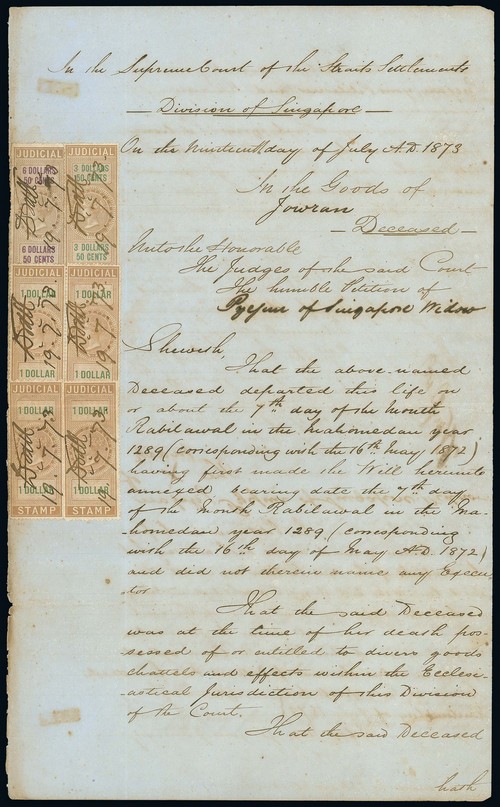 In the Supreme Court of the Straits Settlements
Division of Singapore
On the Nineteenth day of July A.D. 1873
In the Goods of
Jowran
Deceased
Unto the Honorable
The Judges of the said Court
The humble Petition of
of Singapore Widow
Sheweth,
That the above-named
Deceased departed this life on
or about the 7th day of the Month
Rabilawal in the Mahomedan year
1289 (corresponding with the 16th May 1872)
having first made the Will hereunto
annexed bearing date the 7th day
of the Month Rabilawal in the Ma-
-homedan year 1289 (corresponding
with the 16th day of May A.D. 1872)
and did not therein name any Execu-
-tor
That the said Deceased
was at the time of her death pos-
-sessed of or entitled to divers goods
chattels and effects within the Eccles-
-astical Jurisdiction of this Division
of the Court.
That the said Deceased
hath
JUDICIAL
6 DOLLARS
50 CENTS
6 DOLLARS
50 CENTS
19-7-73
JUDICIAL
3 DOLLARS
50 CENTS
3 DOLLARS
50 CENTS
19-7-73
JUDICIAL
1 DOLLAR
1 DOLLAR
19-7-73
JUDICIAL
1 DOLLAR
1 DOLLAR
19-7-73
JUDICIAL
1 DOLLAR
1 DOLLAR
STAMP
19-7-73
JUDICIAL
1 DOLLAR
1 DOLLAR
STAMP
19-7-73